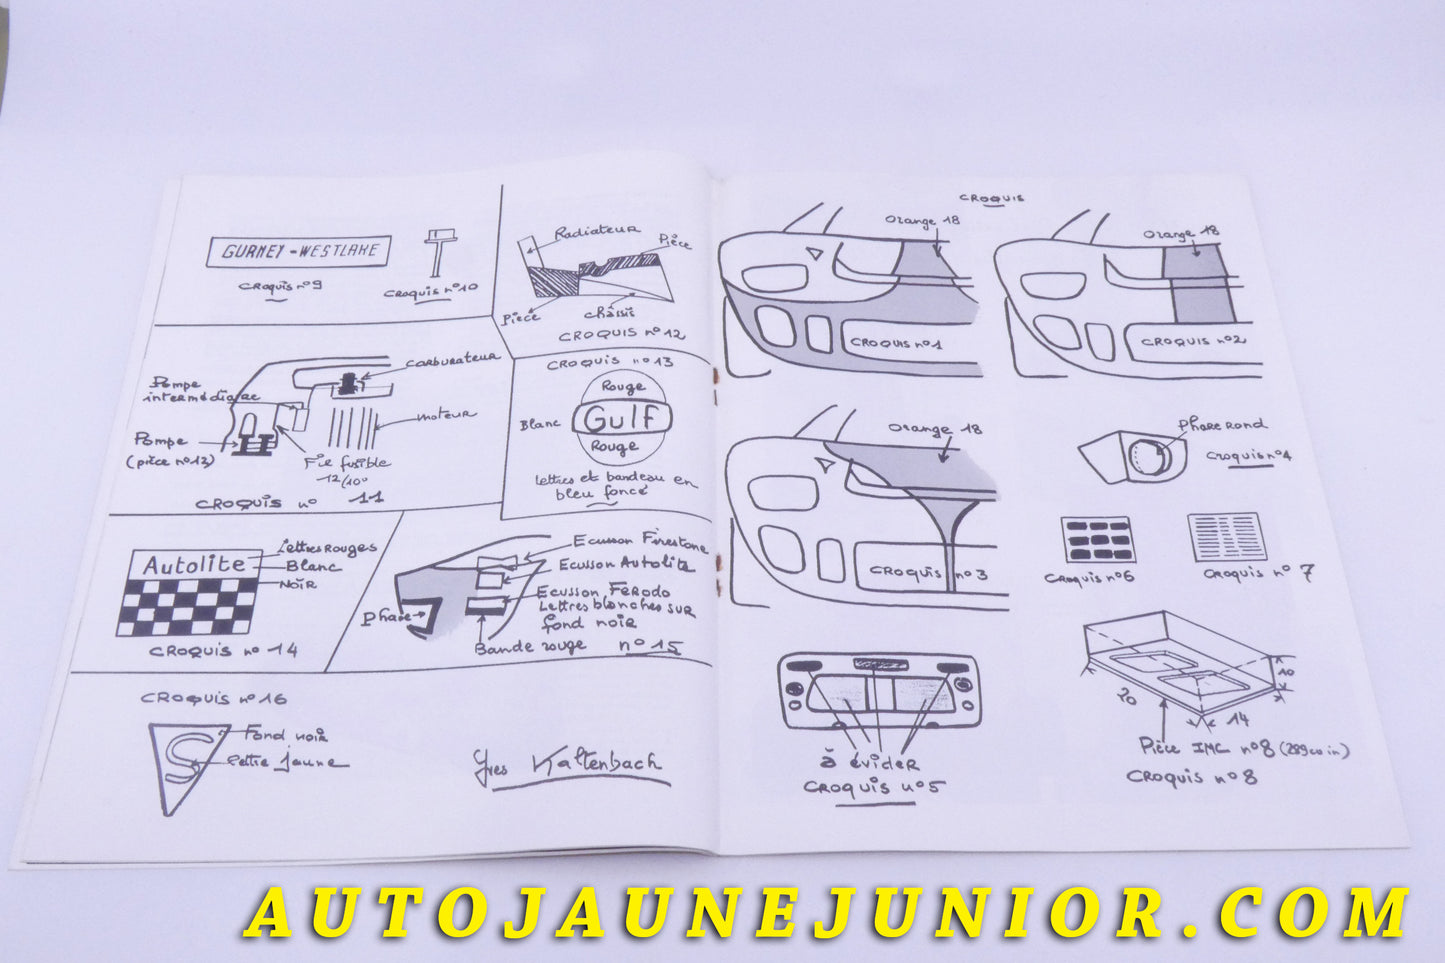 GURNEY - WESTLAKE
CROQUIS nº9
CROQUIS nº10
Radiateur
Pièce
Pièce
châssis
CROQUIS nº12
carburateur
Pompe
intermédiaire
moteur
Pompe
(pièce nº12)
Fil fusible
12/10º
CROQUIS nº 11
CROQUIS nº13
Rouge
Blanc
Gulf
Rouge
lettres et bandeau en
bleu foncé
Autolite
Lettres Rouges
Blanc
NOIR
CROQUIS nº 14
Ecusson Firestone
Ecusson Autolite
Ecusson FERODO
Lettres blanches sur
fond noir
Phare
Bande rouge
nº15
CROQUIS nº16
S
Fond noir
lettre jaune
Yves Kaltenbach
CROQUIS
Orange 18
CROQUIS nº1
Orange 18
CROQUIS nº2
Orange 18
CROQUIS nº3
Phare rond
CROQUIS nº4
CROQUIS nº6
CROQUIS nº 7
à évider
CROQUIS nº5
20
14
10
Pièce IMC nº8 (289 co in)
CROQUIS nº8
AUTOJAUNEJUNIOR.COM